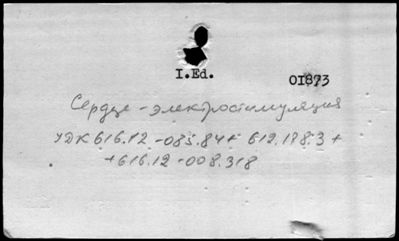 I.Ed.
OI873
Сердце - электростимуляция
УДК 616.12 - 085.84 + 612.178.3 +
+ 616.12 - 008.318